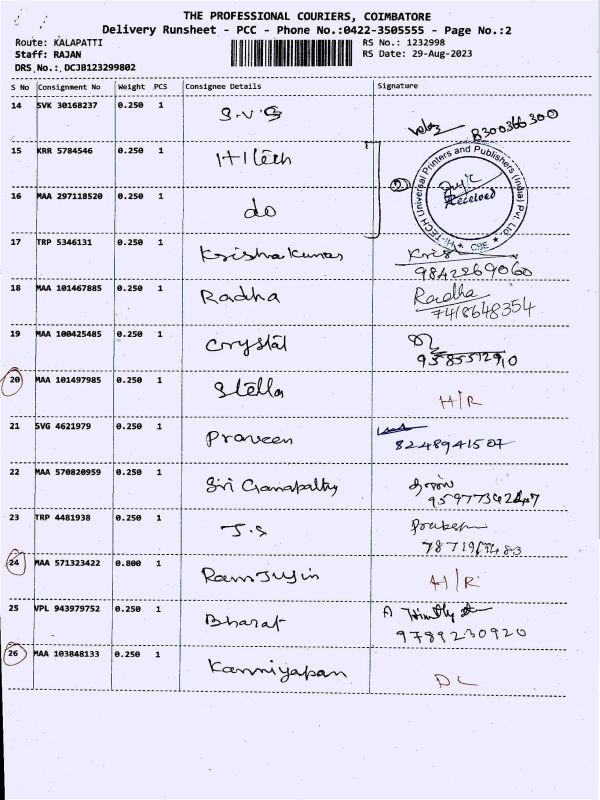 THE PROFESSIONAL COURIERS, COIMBATORE
Delivery Runsheet - PCC - Phone No.:0422-3505555 - Page No.:2
Route: KALAPATTI RS No.: 1232998
Staff: RAJAN RS Date: 29-Aug-2023
DRS No.: DCJB123299802
S No Consignment No Weight PCS Consignee Details Signature
14 SVK 30168237 0.250 1 S.V.S 8300366300
15 KRR 5784546 0.250 1 HI tech
16 MAA 297118520 0.250 1 do
HI-TECH Universal Printers and Publishers (India) Pvt. Ltd. * CBE *
Received
17 TRP 5346131 0.250 1 Krishakumar Kris
9842269060
18 MAA 101467885 0.250 1 Radha Radha
7418648354
19 MAA 100425485 0.250 1 Crystal
9585551290
20 MAA 101497985 0.250 1 Stella H/R
21 SVG 4621979 0.250 1 Praveen
8248941507
22 MAA 570820959 0.250 1 Siri Ganapathy
23 TRP 4481938 0.250 1 J.S
24 MAA 571323422 0.800 1 H/R
25 VPL 943979752 0.250 1 Bharat
9789230920
26 MAA 103848133 0.250 1 Kanniyapan DL